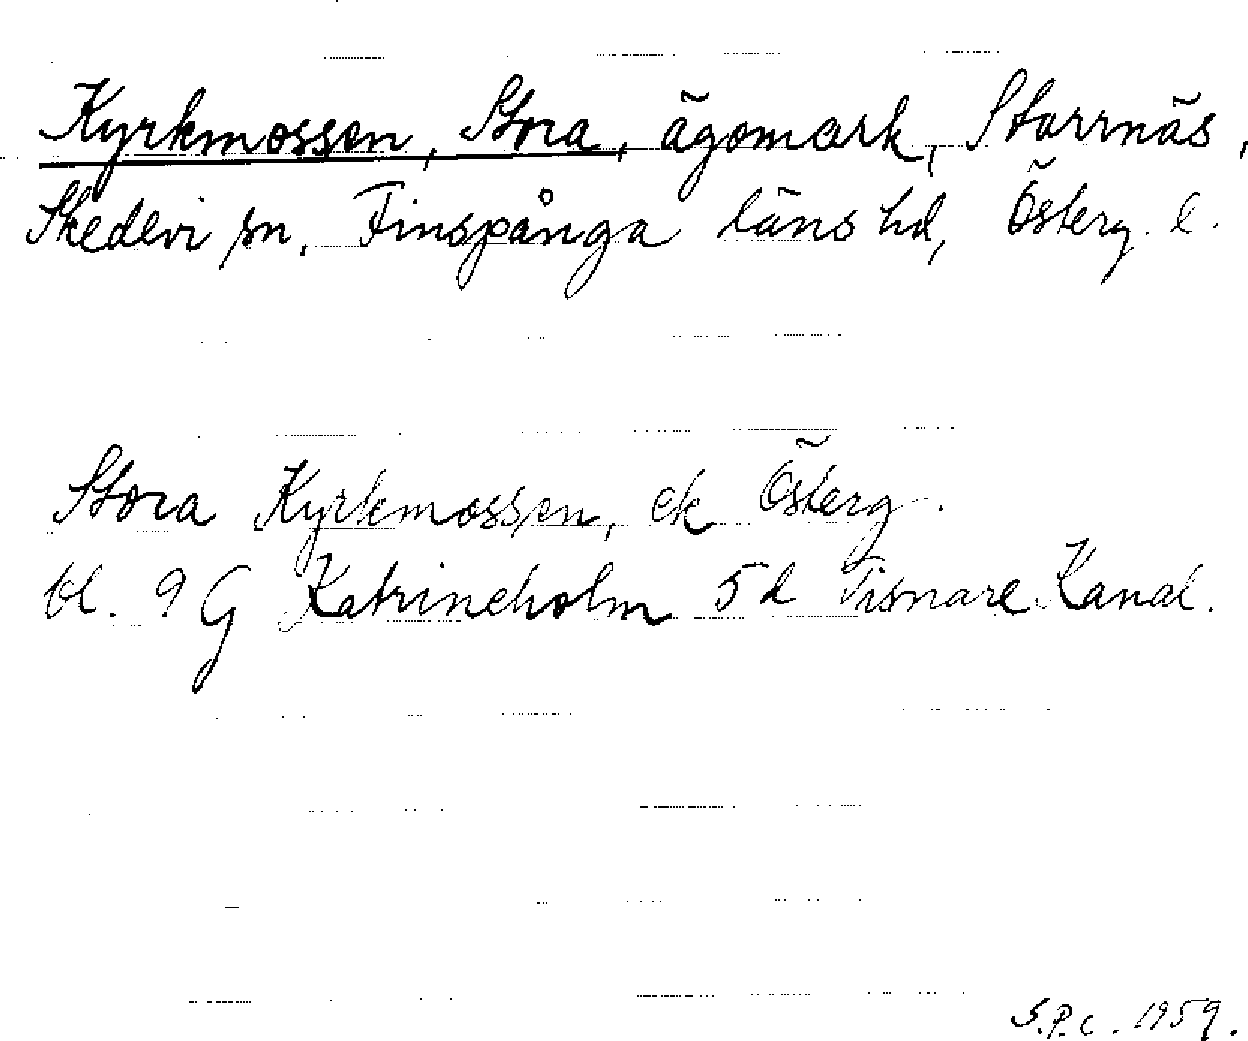 Kyrkmossen, Stora, ägomark, Starrnäs,
Skedevi sn, Finspånga läns hd, Österg. l.
Stora Kyrkmossen, ek Österg.
bl. 9 G Katrineholm 5d Tisnare Kanal.
S.P.c. 1959.